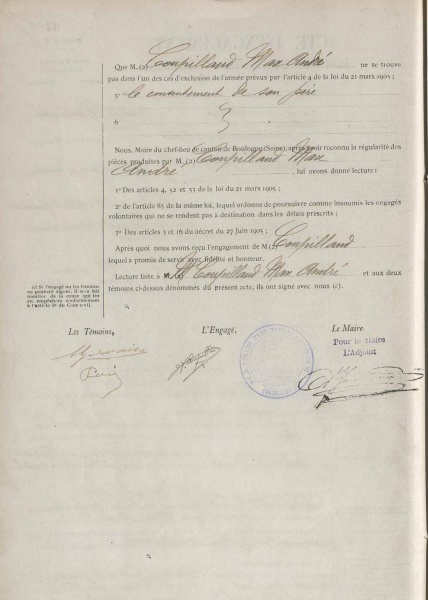 Que M. (2) Coupilland Max André ne se trouve
pas dans l'un des cas d'exclusion de l'année prévus par l'article 4 de la loi du 21 mars 1905 ;
5° le consentement de son père
6
Nous, Maire du chef-lieu de canton de Boulogne (Seine), après avoir reconnu la régularité des
pièces produites par M. (2) Coupilland Max
André, lui avons donné lecture :
1° Des articles 4, 52 et 53 de la loi du 21 mars 1905 ;
2° de l'article 83 de la même loi, lequel ordonne de poursuivre comme insoumis les engagés
volontaires qui ne se rendent pas à destination dans les délais prescrits ;
7° Des articles 3 et 16 du décret du 27 juin 1905 ;
Après quoi nous avons reçu l'engagement de M (2) Coupilland
lequel a promis de servir avec fidélité et honneur.
Lecture faite à M. (2) Coupilland Max André et aux deux
témoins ci-dessus dénommés du présent acte, ils ont signé avec nous (c).
(c) Si l'engagé ou les témoins
ne peuvent signer, il sera fait
mention de la cause qui les
en empêchera conformément
à l'article 39 du Code civil.
Les Témoins,
L'Engagé,
Le Maire
Pour le Maire
L'Adjoint